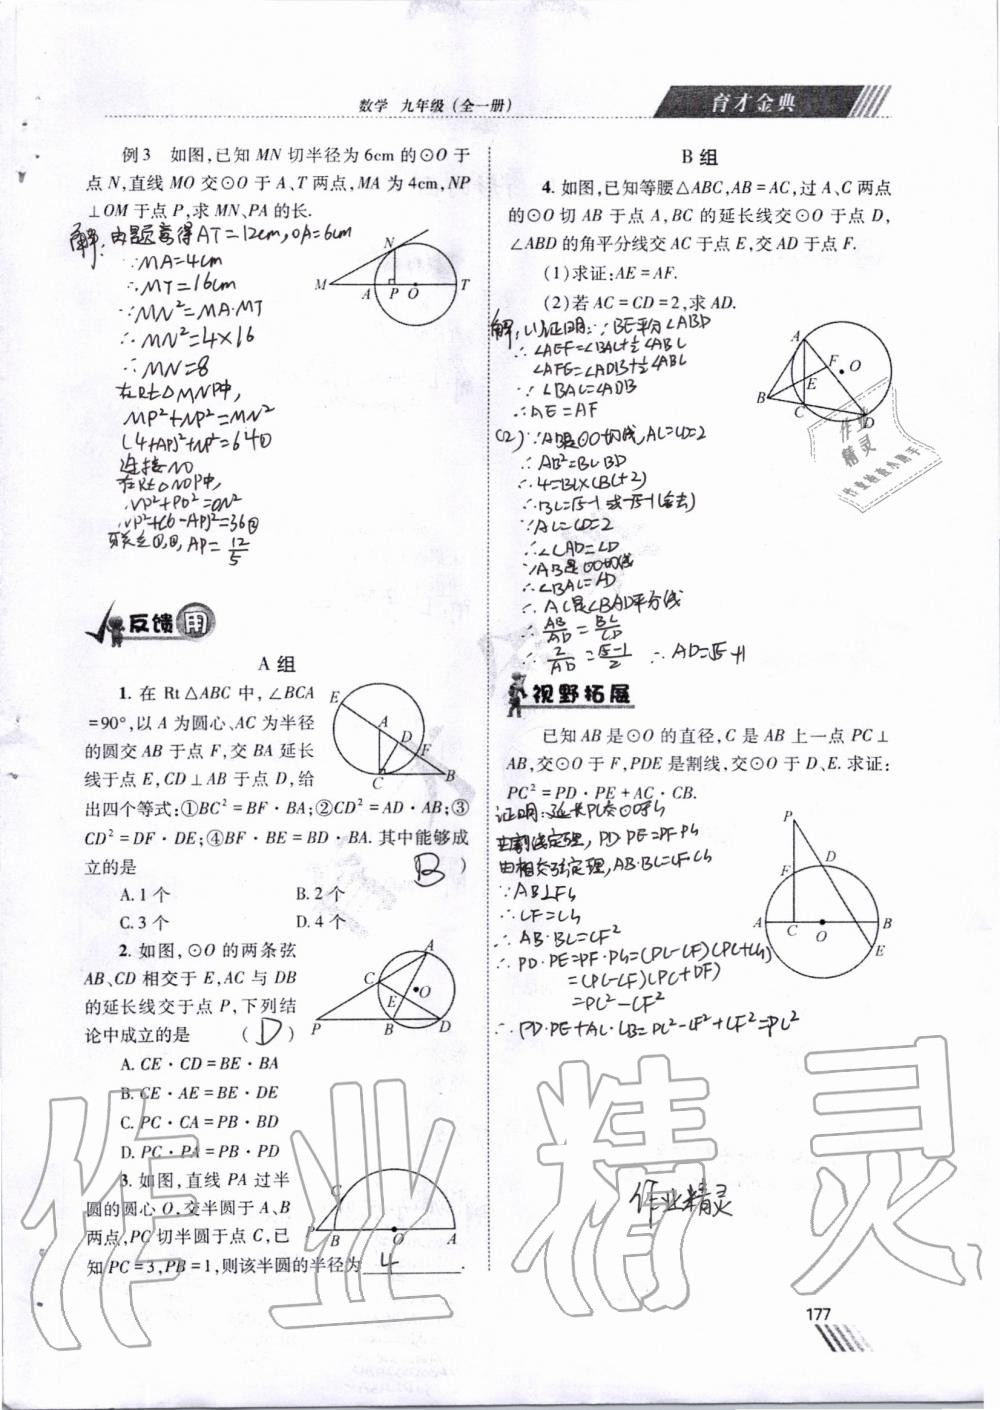 数学 九年级(全一册)
育才金典
例3 如图,已知MN切半径为6cm的⊙O于
点N,直线MO交⊙O于A、T两点,MA为4cm,NP
⊥OM于点P,求MN、PA的长.
解:由题意得AT=12cm,OA=6cm
∵MA=4cm
∴MT=16cm
∵MN²=MA·MT
∴MN²=4×16
∴MN=8
在Rt△MNP中,
MP²+NP²=MN²
(4+AP)²+NP²=64①
连接NO
在Rt△NOP中,
NP²+PO²=ON²
NP²+(6-AP)²=36②
联立①,②,AP=12/5
M A P O T N
反馈 用
A组
1. 在Rt△ABC中,∠BCA
=90°,以A为圆心、AC为半径
的圆交AB于点F,交BA延长
线于点E,CD⊥AB于点D,给
出四个等式:①BC²=BF·BA;②CD²=AD·AB;③
CD²=DF·DE;④BF·BE=BD·BA.其中能够成
立的是 B )
A. 1个 B. 2个
C. 3个 D. 4个
E A D F C B
2. 如图,⊙O的两条弦
AB、CD相交于E,AC与DB
的延长线交于点P,下列结
论中成立的是 ( D )
A. CE·CD=BE·BA
B. CE·AE=BE·DE
C. PC·CA=PB·BD
D. PC·PA=PB·PD
A C O E P B D
3. 如图,直线PA过半
圆的圆心O,交半圆于A、B
两点,PC切半圆于点C,已
知PC=3,PB=1,则该半圆的半径为 4 .
C P B O A
B组
4. 如图,已知等腰△ABC,AB=AC,过A、C两点
的⊙O切AB于点A,BC的延长线交⊙O于点D,
∠ABD的角平分线交AC于点E,交AD于点F.
(1)求证:AE=AF.
(2)若AC=CD=2,求AD.
解:(1)证明:∵BE平分∠ABD
∴∠AEF=∠BAC+½∠ABC
∠AFE=∠ADB+½∠ABC
∵∠BAC=∠ADB
∴AE=AF
(2)∵AB是⊙O切线,AC=CD=2
∴AB²=BC·BD
∴4=BC×(BC+2)
∴BC=√5-1或-√5-1(舍去)
∵AC=CD=2
∴∠CAD=∠D
∵AB是⊙O切线
∴∠BAC=∠D
∴AC是∠BAD平分线
∴AB/AD=BC/CD
∴2/AD=(√5-1)/2 ∴AD=√5+1
A F O E B C D
视野拓展
已知AB是⊙O的直径,C是AB上一点PC⊥
AB,交⊙O于F,PDE是割线,交⊙O于D、E.求证:
PC²=PD·PE+AC·CB.
证明:延长PC交⊙O于G
由割线定理,PD·PE=PF·PG
由相交弦定理,AC·BC=CF·CG
∵AB⊥FG
∴CF=CG
∴AC·BC=CF²
∴PD·PE=PF·PG=(PC-CF)(PC+CG)
=(PC-CF)(PC+CF)
=PC²-CF²
∴PD·PE+AC·CB=PC²-CF²+CF²=PC²
P F D A C O B E
作业精灵
作业精灵
177